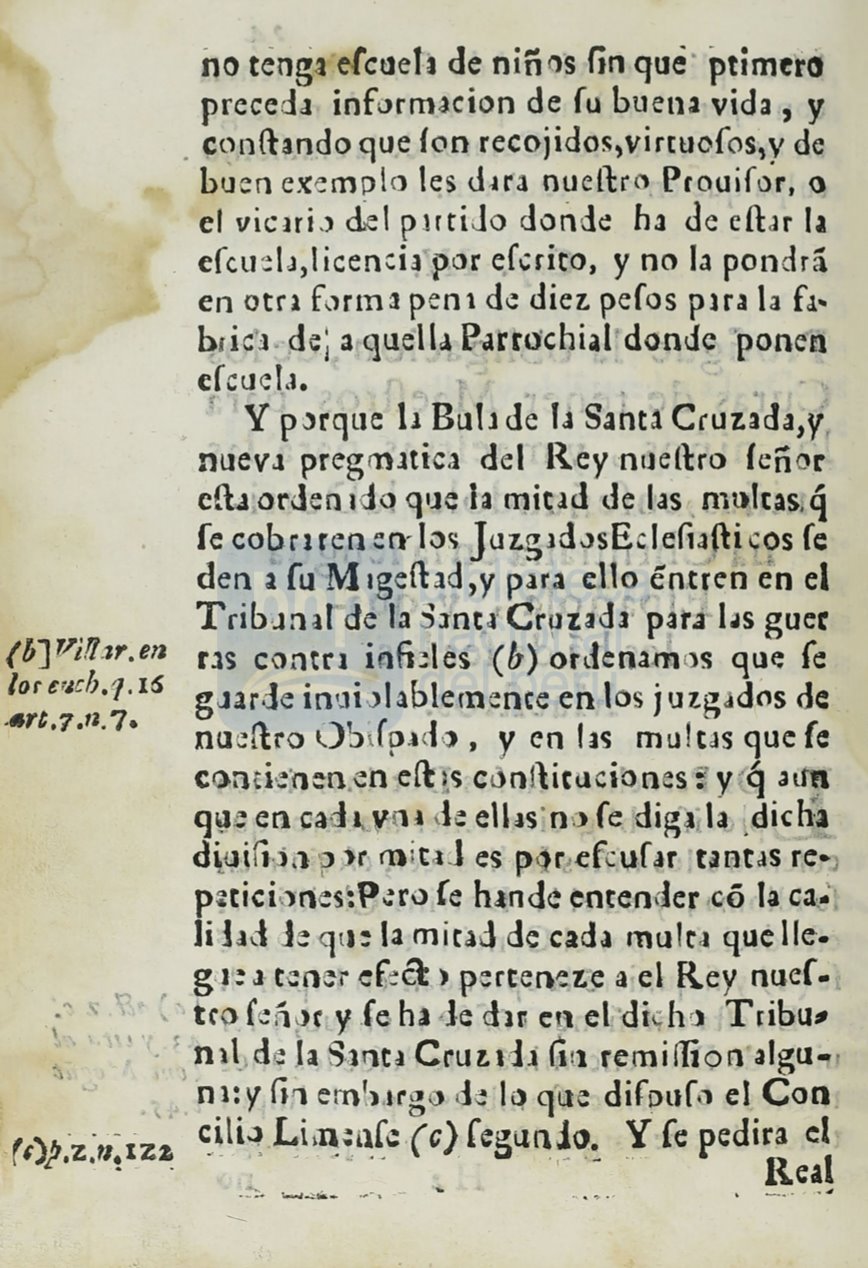 no tenga eſcuela de niños ſin que ptimero
preceda informacion de ſu buena vida, y
conſtando que ſon recojidos,virtuoſos,y de
buen exemplo les dara nueſtro Prouiſor, o
el vicario del partido donde ha de eſtar la
eſcuela,licencia por eſcrito, y no la pondrã
en otra forma pena de diez peſos para la fa-
brica de aquella Parrochial donde ponen
eſcuela.
Y porque la Bula de la Santa Cruzada,y
nueva pregmatica del Rey nueſtro ſeñor
eſta ordenado que la mitad de las multas,q́
ſe cobraren en los Juzgados Ecleſiaſticos ſe
den a ſu Mageſtad,y para ello éntren en el
Tribunal de la Santa Cruzada para las guer
ras contra infieles (b) ordenamos que ſe
guarde inuiolablemente en los juzgados de
nueſtro Obiſpado, y en las multas que ſe
contienen en eſtas conſtituciones: y q́ aun
que en cada vna de ellas no ſe diga la dicha
diuiſion por mitad es por eſcuſar tantas re-
peticiones:Pero ſe han de entender cõ la ca-
lidad de que la mitad de cada multa que lle-
gue a tener efecto perteneze a el Rey nueſ-
tro ſeñor y ſe ha de dar en el dicho Tribu-
nal de la Santa Cruzada ſin remiſſion algu-
na:y ſin embargo de lo que diſpuſo el Con
cilio Limenſe (c) ſegundo. Y ſe pedira el
Real
(b] Villar. en
los q.16
art.7.n.7.
(c)p.2.n.122